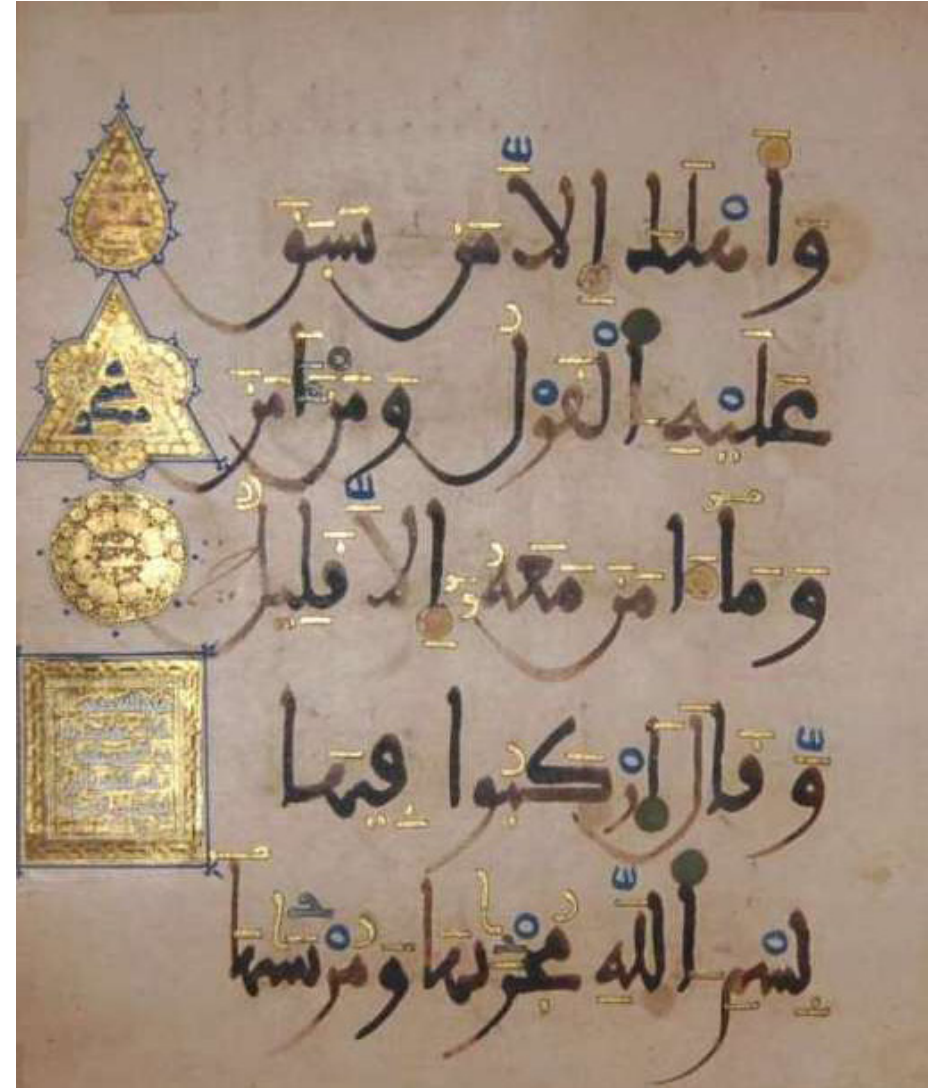 وَأَهْلَكَ إِلَّا مَن سَبَقَ
عَلَيْهِ اَ۬لْقَوْلُ وَمَنَ اٰمَنَ
وَمَآ ءَامَنَ مَعَهُۥٓ إِلَّا قَلِيلٌ
وَّقَالَ اَ۪رْكَبُواْ فِيهَا
بِسْمِ اِ۬للَّهِ مُجْر۪ىٰهَا وَمُرْسَىٰهَآ